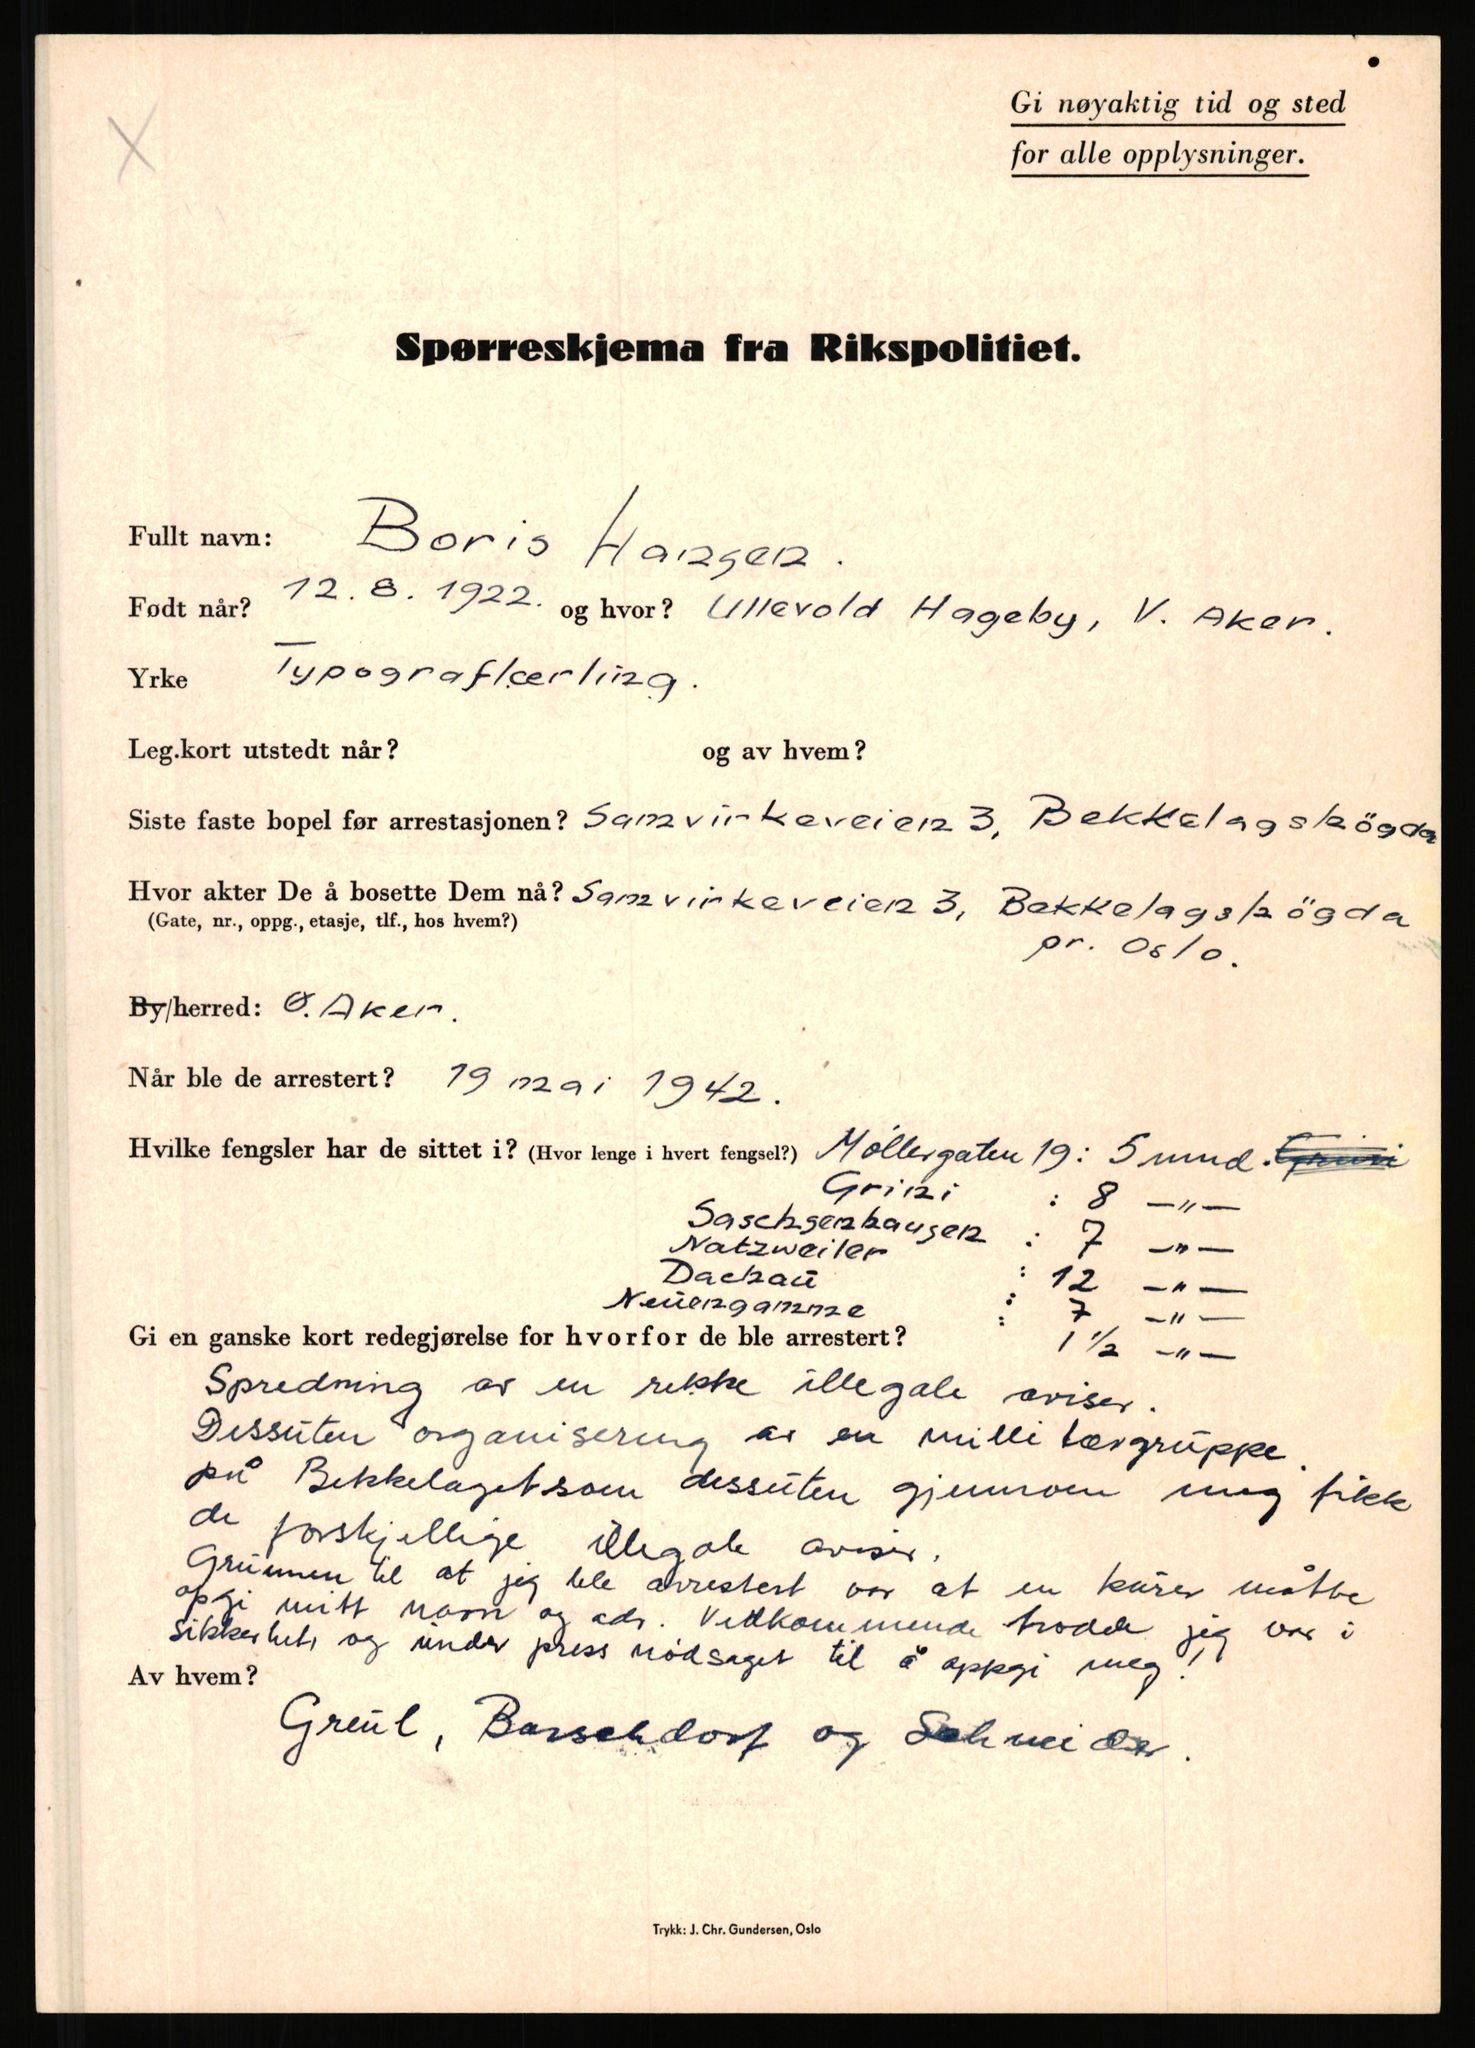 Gi nøyaktig tid og sted
for alle opplysninger.
Spørreskjema fra Rikspolitiet.
Fullt navn: Boris Hansen.
Født når? 12. 8. 1922. og hvor? Ullevold Hageby, V. Aker.
Yrke Typograflærling.
Leg.kort utstedt når? og av hvem?
Siste faste bopel før arrestasjonen? Samvirkeveien 3, Bekkelagshögda
Hvor akter De å bosette Dem nå? Samvirkeveien 3, Bekkelagshögda
(Gate, nr., oppg., etasje, tlf., hos hvem?) pr. Oslo.
By/herred: Ø. Aker.
Når ble de arrestert? 19 mai 1942.
Hvilke fengsler har de sittet i? (Hvor lenge i hvert fengsel?) Møllergaten 19: 5 mnd. Grini
Grini : 8 —"—
Saschsenhausen : 7 —"—
Natzweiler : 12 —"—
Dachau : 7 —"—
Neuengamme : 1 1/2 —"—
Gi en ganske kort redegjørelse for hvorfor de ble arrestert?
Spredning av en rekke illegale aviser.
Dessuten organisering av en millitærgruppe
på Bekkelaget som dessuten gjennom meg fikk
de forskjellige illegale aviser.
Grunnen til at jeg ble arrestert var at en kurer måtte
opgi mitt navn og adr. Vedkommende trodde jeg var i
sikkerhet og under press nødsaget til å oppgi meg!
Av hvem?
Greul, Barschdorf og Schneider.
Trykk: J. Chr. Gundersen, Oslo